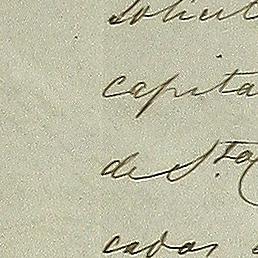 solicit
capita
de Sta
cados